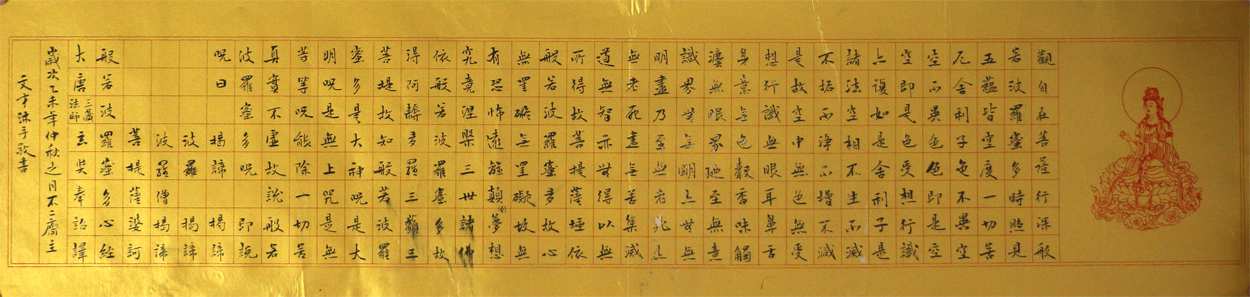 觀自在菩薩行深般
若波羅蜜多時照見
五蘊皆空度一切苦
厄舍利子色不異空
空不異色色即是空
空即是色受想行識
亦復如是舍利子是
諸法空相不生不滅
不垢不淨不增不減
是故空中無色無受
想行識無眼耳鼻舌
身意無色聲香味觸
法無眼界乃至無意
識界無無明亦無無
明盡乃至無老死亦
無老死盡無苦集滅
道無智亦無得以無
所得故菩提薩埵依
般若波羅蜜多故心
無罣礙無罣礙故無
有恐怖遠離顛倒夢想
究竟涅槃三世諸佛
依般若波羅蜜多故
得阿耨多羅三藐三
菩提故知般若波羅
蜜多是大神呪是大
明呪是無上呪是無
等等呪能除一切苦
真實不虛故說般若
波羅蜜多呪即說
呪曰揭諦揭諦
波羅揭諦
波羅僧揭諦
菩提薩婆訶
般若波羅蜜多心經
大唐三藏法師玄奘奉詔譯
歲次乙未年仲秋之月不二齋主
文沐手敬書